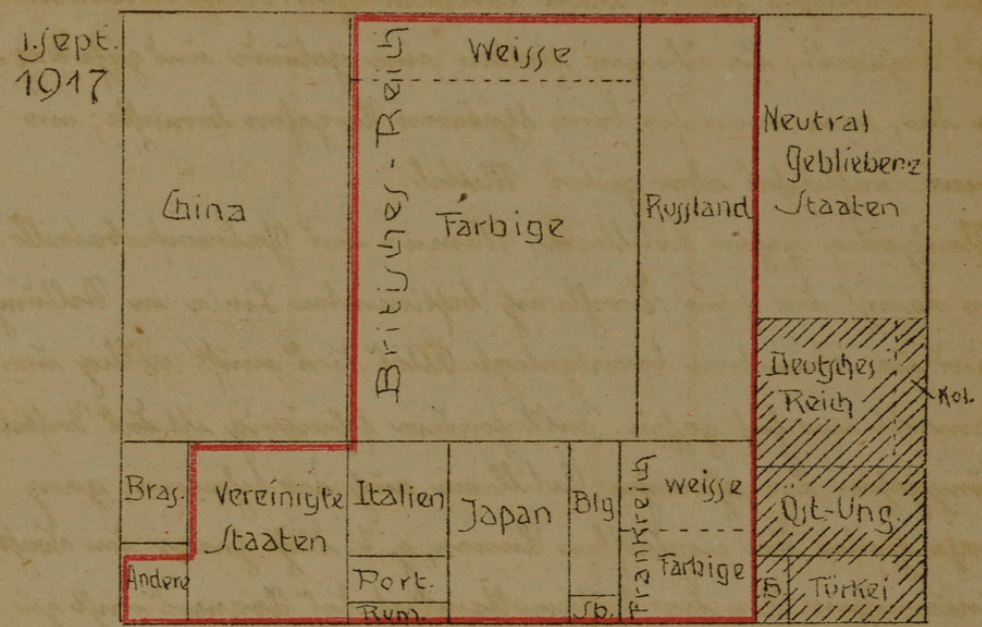 1. Sept.
1917
China
Britisches-Reich
Weisse
Farbige
Russland
Neutral
Gebliebene
Staaten
Deutsches
Reich
Kol.
Bras.
Andere
Vereinigte
Staaten
Italien
Port.
Rum.
Japan
Blg
Sb.
Frankreich
weisse
Farbige
Öst-Ung.
B.
Türkei